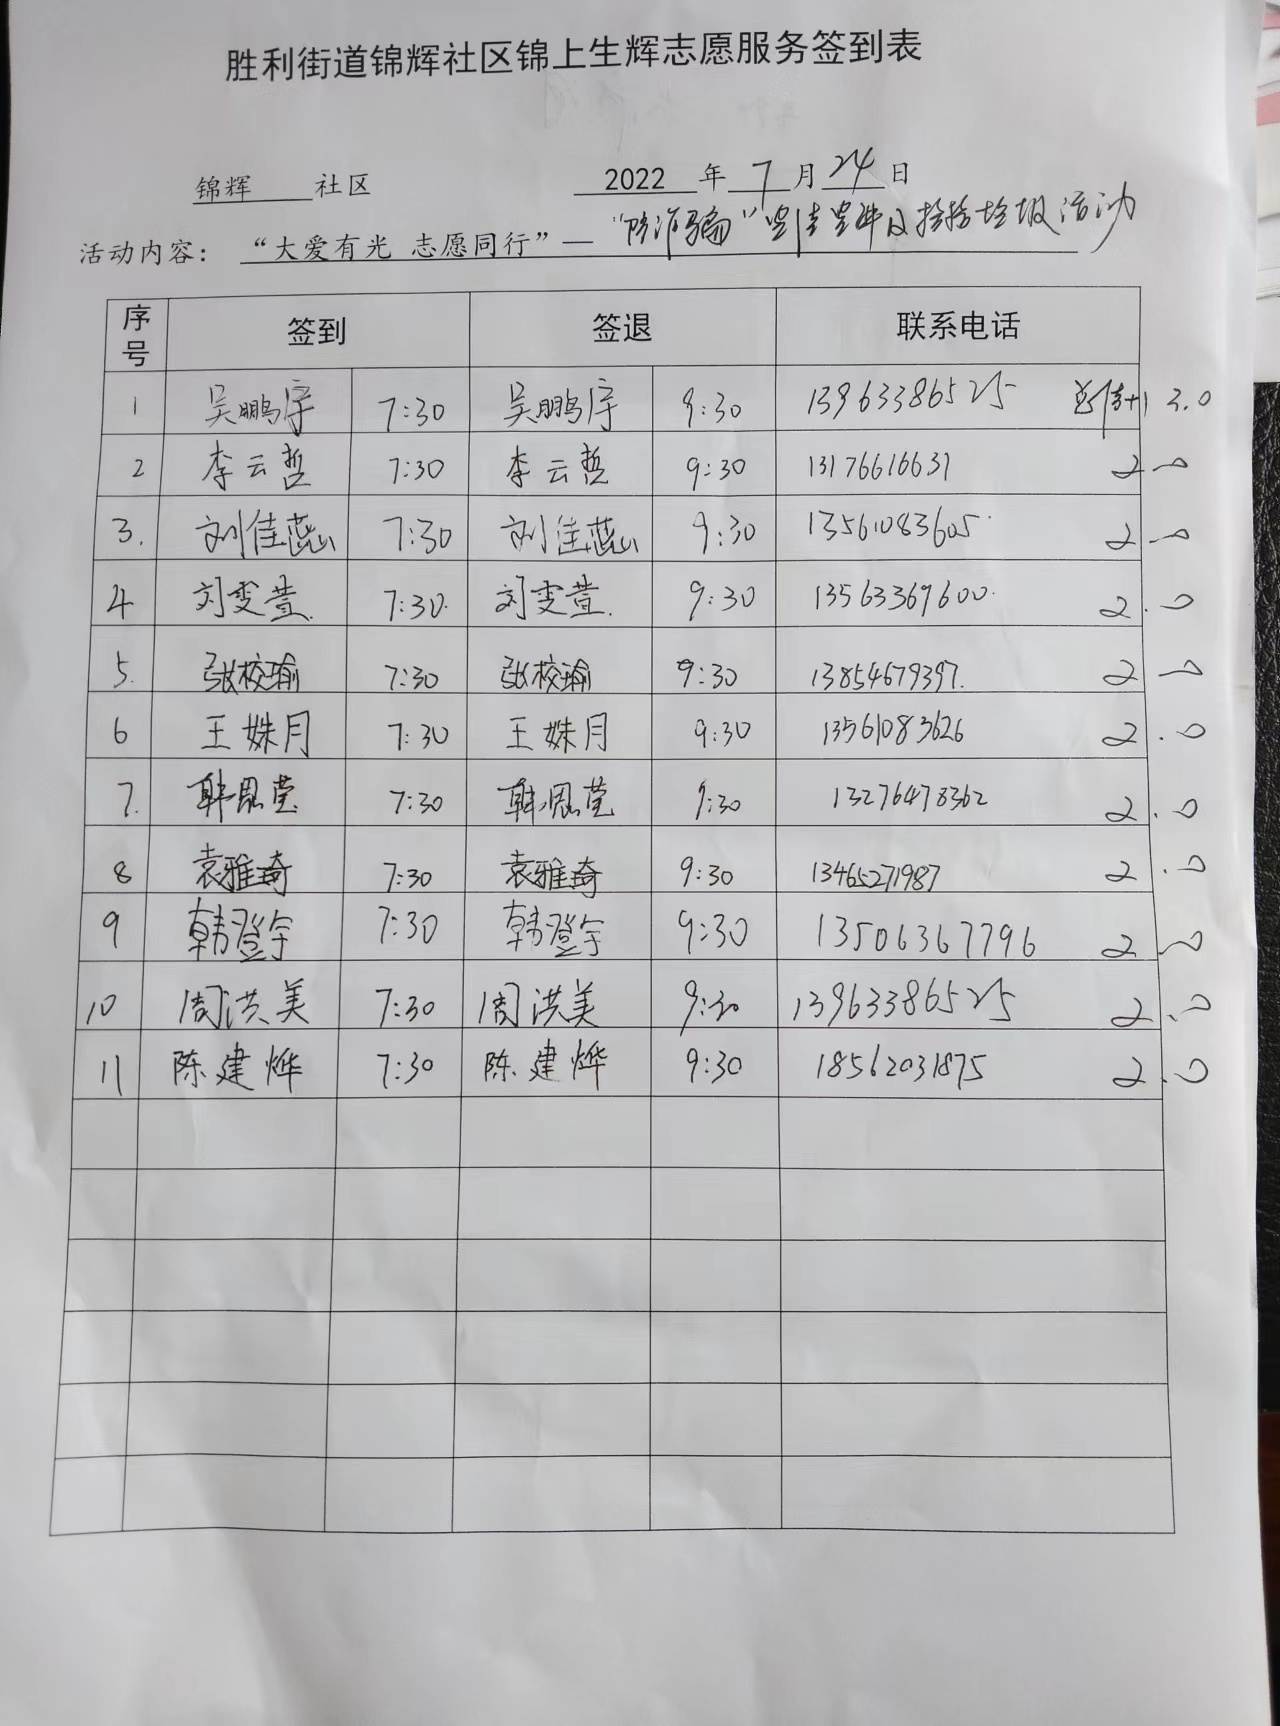 胜利街道锦辉社区锦上生辉志愿服务签到表
锦辉 社区 2022 年 7 月 24 日
活动内容： “大爱有光 志愿同行”— “防诈骗”宣传宣讲及捡拾垃圾活动
序号 签到 签退 联系电话
1 吴鹏宇 7:30 吴鹏宇 9:30 13963386525 宣传+1 3.0
2 李云哲 7:30 李云哲 9:30 13176616631 2.0
3. 刘佳蕊 7:30 刘佳蕊 9:30 13561083605 2.0
4 刘雯萱 7:30 刘雯萱 9:30 13563369600 2.0
5. 张校瑜 7:30 张校瑜 9:30 13854679397. 2.0
6 王姝月 7:30 王姝月 9:30 13561083626 2.0
7. 韩恩莹 7:30 韩恩莹 9:30 13276478362 2.0
8 袁雅琦 7:30 袁雅琦 9:30 13465271987 2.0
9 韩登宇 7:30 韩登宇 9:30 13506367796 2.0
10 周洪美 7:30 周洪美 9:30 13963386525 2.0
11 陈建烨 7:30 陈建烨 9:30 18562031875 2.0